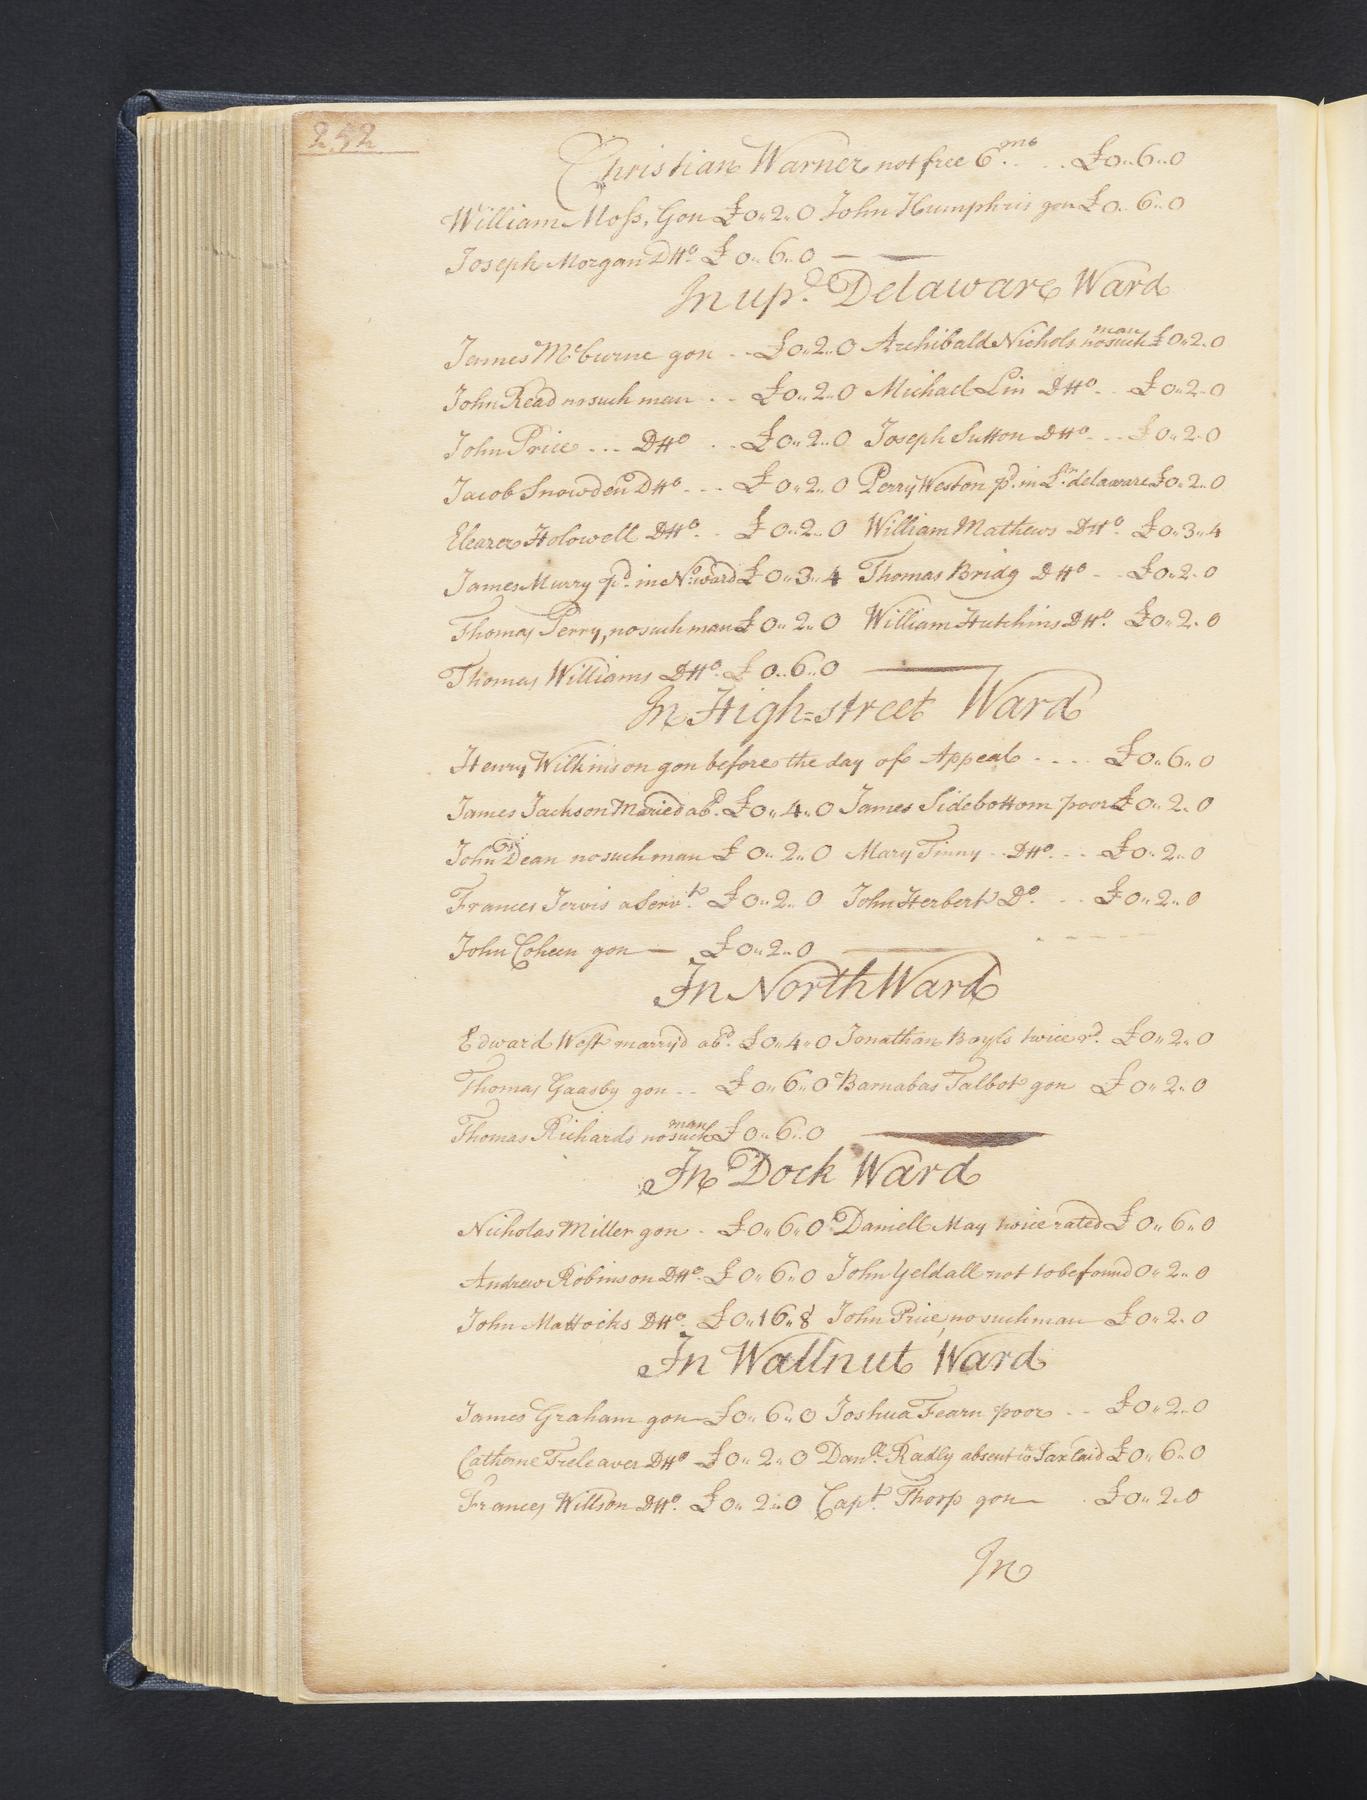 252
Christian Warner not free 6 mo .. £0..6..0
William Moss, Gon £0..2..0 John Humphris gon £0..6..0
Joseph Morgan Dtto. £0..6..0 —
In upr. Delaware Ward
James McCurne gon .. £0..2..0 Archibald Nichols no such man £0..2..0
John Read no such man .. £0..2..0 Michael Lin Dtto .. £0..2..0
John Price ... Dtto .. £0..2..0 Joseph Sutton Dtto ... £0..2..0
Jacob Snowden Dtto ... £0..2..0 Perry Weston pd. in Lr. delaware £0..2..0
Eleazer Holowell Dtto. . £0..2..0 William Mathews Dtto. £0..3..4
James Murry pd. in No: ward £0..3..4 Thomas Bridg Dtto .. £0..2..0
Thomas Perry, no such man £0..2..0 William Hutchins Dtto. £0..2..0
Thomas Williams Dtto. £0..6..0 —
In High=street Ward
Henry Wilkinson gon before the day of Appeal .... £0..6..0
James Jackson Maried abd. £0..4..0 James Sidebottom poor £0..2..0
John Dean no such man £0..2..0 Mary Tinny .. Dtto. .. £0..2..0
Frances Jervis a Servt. £0..2..0 John Herbert Do. .. £0..2..0
John Coheen gon — £0..2..0 —
In North Ward
Edward West marryd abd. £0..4..0 Jonathan Bayls twice rd. £0..2..0
Thomas Gaasby gon .. £0..6..0 Barnabas Talbot gon £0..2..0
Thomas Richards no such man £0..6..0
In Dock Ward
Nicholas Miller gon . £0..6..0 Daniell May twice rated £0..6..0
Andrew Robinson Dtto. £0..6..0 John Geldall not to be found 0..2..0
John Mattocks Dtto. £0..16..8 John Price, no such man £0..2..0
In Wallnut Ward
James Graham gon £0..6..0 Joshua Fearn poor .. £0..2..0
Catherne Treleaver Dtto £0..2..0 Danll. Radly absent wn Tax laid £0..6..0
Frances Willson Dtto. £0..2..0 Capt. Thorp gon — . £0..2..0
In